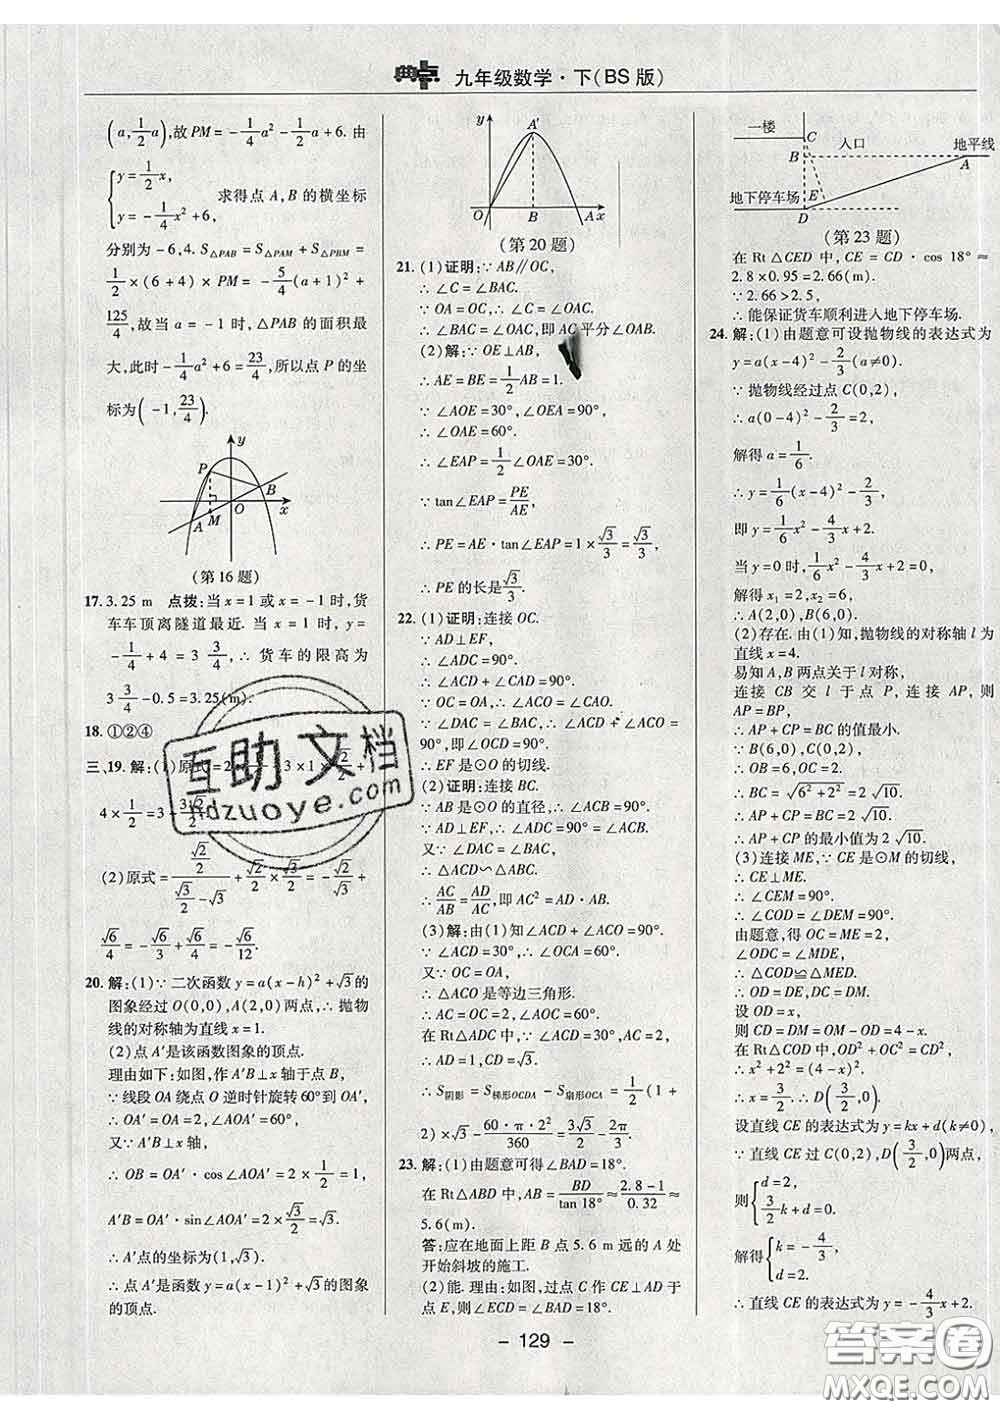 典点 九年级数学·下(BS版)
(a, 1/2 a),故 PM = -1/4 a² - 1/2 a + 6. 由
{ y = 1/2 x, y = -1/4 x² + 6, 求得点 A,B 的横坐标
分别为 -6,4. S△PAB = S△PAM + S△PBM =
1/2 × (6+4) × PM = -5/4 (a+1)² +
125/4,故当 a = -1 时,△PAB 的面积最
大,此时 -1/4 a² - 1/2 a + 6 = 23/4,即点 P 的坐
标为 (-1, 23/4).
y
P
B
A M O x
(第16题)
17. 3.25 m 点拨:当 x=1 或 x=-1 时,货
车车顶离隧道最近. 当 x=1 时, y=
-1/4 + 4 = 3 3/4,∴货车的限高为
3 3/4 - 0.5 = 3.25(m).
18. ①②④
三、19. 解:(1)原式=2× 3×1×√2/2+
4×1/2=3-3√2/2+
(2)原式 = (√2/2)/(√3/2-√3) + √2/2 × √3/2 =
√6/4 = -√6/3 + √6/4 = -√6/12.
20. 解:(1)∵二次函数 y=a(x-h)²+√3的
图象经过 O(0,0),A(2,0)两点,∴抛物
线的对称轴为直线 x=1.
(2)点 A′是该函数图象的顶点.
理由如下:如图,作 A′B⊥x 轴于点 B,
∵线段 OA 绕点 O 逆时针旋转60°到 OA′,
∴OA′=OA=2,∠A′OA=60°.
又∵A′B⊥x 轴,
∴OB=OA′·cos∠AOA′=2×1/2=1,
A′B=OA′·sin∠AOA′=2×√3/2=√3.
∴A′点的坐标为(1,√3).
∴点 A′是函数 y=a(x-1)²+√3的图象
的顶点.
y
A′
O B A x
(第20题)
21. (1)证明:∵AB∥OC,
∴∠C=∠BAC.
∵OA=OC,∴∠C=∠OAC.
∴∠BAC=∠OAC,即 AC平分∠OAB.
(2)解:∵OE⊥AB,
∴AE=BE=1/2 AB=1.
∵∠AOE=30°,∠OEA=90°,
∴∠OAE=60°.
∴∠EAP=1/2∠OAE=30°.
∵tan∠EAP=PE/AE,
∴PE=AE·tan∠EAP=1×√3/3=√3/3,
∴PE 的长是√3/3.
22. (1)证明:连接 OC.
∵AD⊥EF,
∴∠ADC=90°.
∴∠ACD+∠CAD=90°.
∵OC=OA,∴∠ACO=∠CAO.
∵∠DAC=∠BAC,∴∠ACD+∠ACO=
90°,即∠OCD=90°.
∴EF 是⊙O 的切线.
(2)证明:连接 BC.
∵AB 是⊙O 的直径,∴∠ACB=90°.
∵AD⊥EF,∴∠ADC=90°=∠ACB.
又∵∠DAC=∠BAC,
∴△ACD∽△ABC.
∴AC/AB=AD/AC,即 AC²=AD·AB.
(3)解:由(1)知∠ACD+∠ACO=90°.
∵∠ACD=30°,∴∠OCA=60°.
又∵OC=OA,
∴△ACO 是等边三角形.
∴AC=OC=2,∠AOC=60°.
在 Rt△ADC 中,∵∠ACD=30°,AC=2,
∴AD=1,CD=√3.
∴S阴影=S梯形OCDA-S扇形OCA=1/2(1+
2)×√3-60·π·2²/360=3√3/2-2π/3.
23. 解:(1)由题意可得∠BAD=18°.
在 Rt△ABD 中,AB=BD/tan 18°≈2.8-1/0.32≈
5.6(m).
答:应在地面上距 B 点 5.6 m 远的 A 处
开始斜坡的施工.
(2)能. 理由:如图,过点 C 作 CE⊥AD 于
点 E,则∠ECD=∠BAD=18°.
一楼 C 入口 地平线
B A
地下停车场 E
D
(第23题)
在 Rt△CED 中,CE=CD·cos 18°≈
2.8×0.95=2.66(m).
∵2.66>2.5,
∴能保证货车顺利进入地下停车场.
24. 解:(1)由题意可设抛物线的表达式为
y=a(x-4)²-2/3(a≠0).
∵抛物线经过点 C(0,2),
∴a(0-4)²-2/3=2,
解得 a=1/6.
∴y=1/6(x-4)²-2/3,
即 y=1/6x²-4/3x+2.
当 y=0 时,1/6x²-4/3x+2=0,
解得 x₁=2,x₂=6,
∴A(2,0),B(6,0).
(2)存在. 由(1)知,抛物线的对称轴 l 为
直线 x=4.
易知 A,B 两点关于 l 对称,
连接 CB 交 l 于点 P,连接 AP,则
AP=BP,
∴AP+CP=BC 的值最小.
∵B(6,0),C(0,2),
∴OB=6,OC=2.
∴BC=√6²+2²=2√10.
∴AP+CP=BC=2√10.
∴AP+CP 的最小值为2√10.
(3)连接 ME,∵CE 是⊙M 的切线,
∴CE⊥ME.
∴∠CEM=90°.
∴∠COD=∠DEM=90°.
由题意,得 OC=ME=2,
∠ODC=∠MDE,
∴△COD≌△MED.
∴OD=DE,DC=DM.
设 OD=x,
则 CD=DM=OM-OD=4-x.
在 Rt△COD 中,OD²+OC²=CD²,
∴x²+2²=(4-x)².
∴x=3/2.∴D(3/2,0).
设直线 CE 的表达式为 y=kx+d(k≠0),
∵直线 CE 过 C(0,2),D(3/2,0)两点,
则{ d=2, 3/2k+d=0.
解得{ k=-4/3, d=2.
∴直线 CE 的表达式为 y=-4/3x+2.
- 129 -
互助文档
hdzuoye.com
答案圈
MXQE.COM